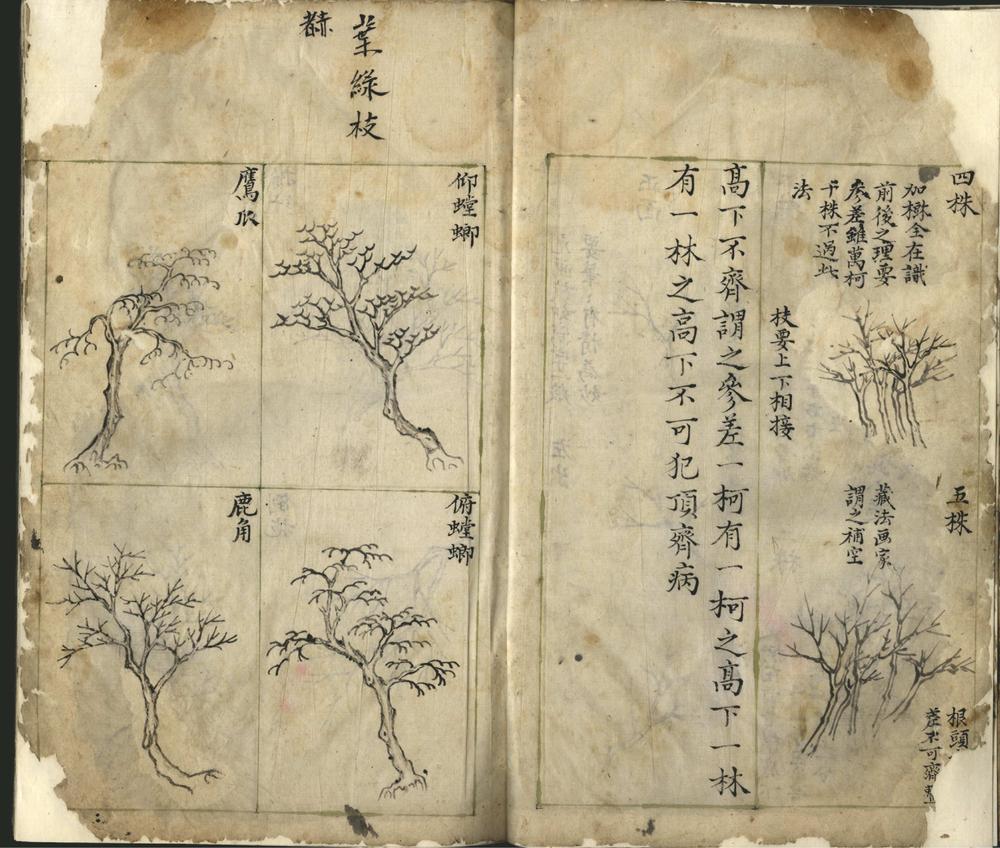 四株
加楙全在識
前後之理要
參差雖萬柯
千株不過此
法
枝要上下相接
五株
藏法画家
謂之補空
根頭
差不可齊
高下不齊謂之參差一柯有一柯之高下一林
有一林之高下不可犯頂齊病
葉綠枝
仰螳螂
鷹爪
俯螳螂
鹿角